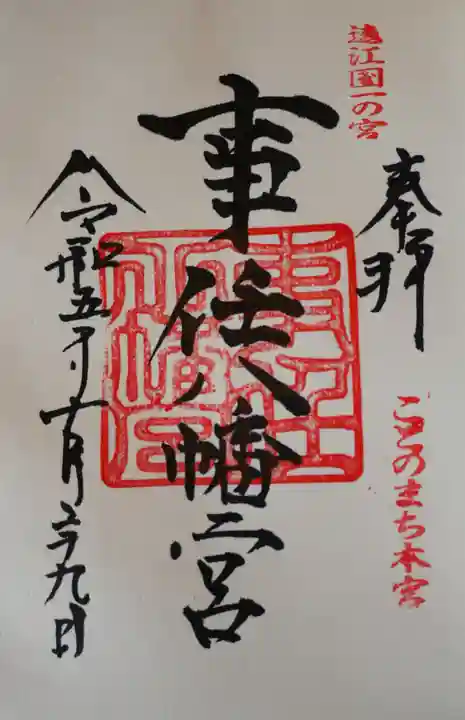 遠江国一の宮
奉拝
ことのまち本宮
事任八幡宮
令和五年十一月二十九日